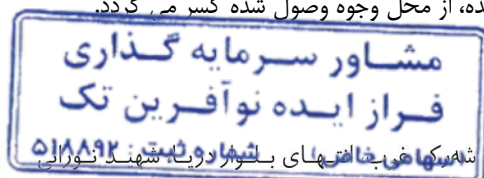 ده، از محل وجوه وصول شده کسر می گردد.
مشاور سرمایه گذاری
فراز ایده نوآفرین تک
(سهامی خاص) شماره ثبت: ۵۱۸۸۹۲
شهرک غرب، انتهای بلوار دریا، شهید نورانی